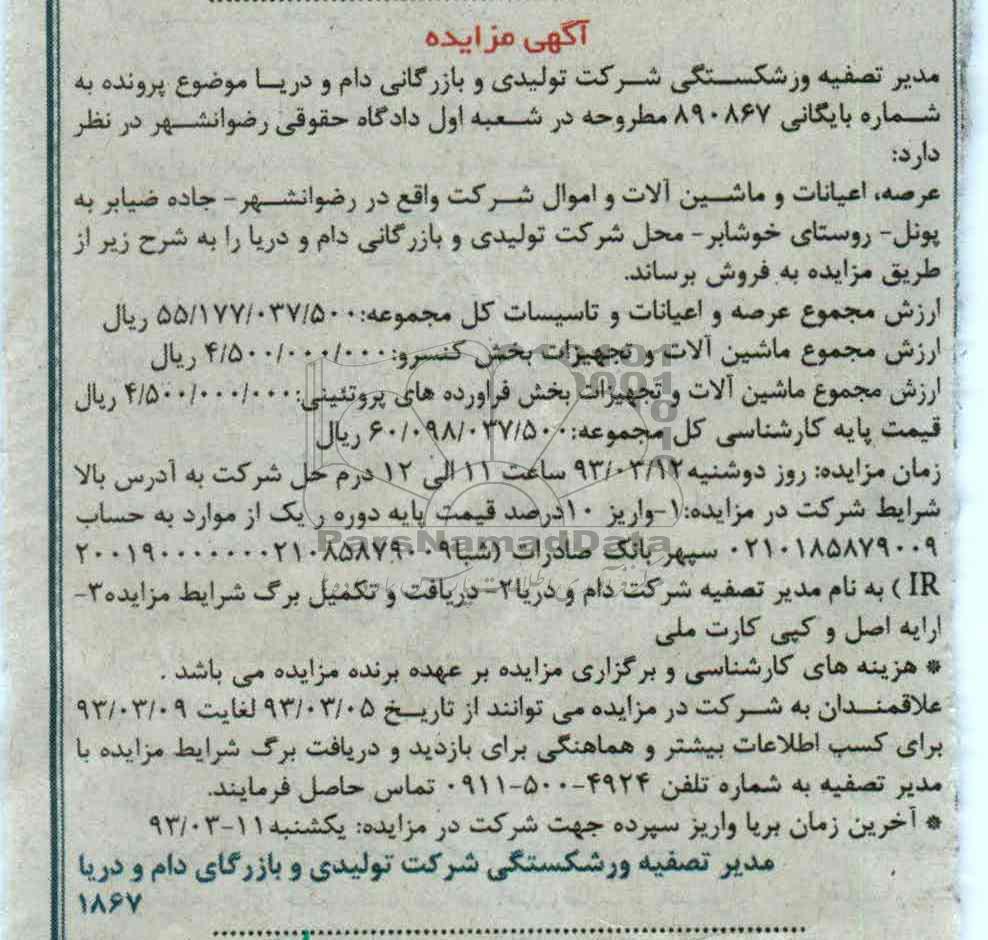 آگهی مزایده
مدیر تصفیه ورشکستگی شرکت تولیدی و بازرگانی دام و دریا موضوع پرونده به
شماره بایگانی ۸۹۰۸۶۷ مطروحه در شعبه اول دادگاه حقوقی رضوانشهر در نظر
دارد:
عرصه، اعیانات و ماشین آلات و اموال شرکت واقع در رضوانشهر- جاده ضیابر به
پونل- روستای خوشابر- محل شرکت تولیدی و بازرگانی دام و دریا را به شرح زیر از
طریق مزایده به فروش برساند.
ارزش مجموع عرصه و اعیانات و تاسیسات کل مجموعه:۵۵/۱۷۷/۰۳۷/۵۰۰ ریال
ارزش مجموع ماشین آلات و تجهیزات بخش کنسرو:۴/۵۰۰/۰۰۰/۰۰۰ ریال
ارزش مجموع ماشین آلات و تجهیزات بخش فراورده های پروتئینی:۴/۵۰۰/۰۰۰/۰۰۰ ریال
قیمت پایه کارشناسی کل مجموعه:۶۰/۰۹۸/۰۳۷/۵۰۰ ریال
زمان مزایده: روز دوشنبه ۹۳/۰۳/۱۲ ساعت ۱۱ الی ۱۲ درم حل شرکت به آدرس بالا
شرایط شرکت در مزایده:۱-واریز ۱۰درصد قیمت پایه دوره ر یک از موارد به حساب
۰۲۱۰۱۸۵۸۷۹۰۰۹ سپهر بانک صادرات (شبا
IR ) به نام مدیر تصفیه شرکت دام و دریا۲- دریافت و تکمیل برگ شرایط مزایده۳-
ارایه اصل و کپی کارت ملی
* هزینه های کارشناسی و برگزاری مزایده بر عهده برنده مزایده می باشد .
علاقمندان به شرکت در مزایده می توانند از تاریخ ۹۳/۰۳/۰۵ لغایت ۹۳/۰۳/۰۹
برای کسب اطلاعات بیشتر و هماهنگی برای بازدید و دریافت برگ شرایط مزایده با
مدیر تصفیه به شماره تلفن ۴۹۲۴-۵۰۰-۰۹۱۱ تماس حاصل فرمایند.
* آخرین زمان بریا واریز سپرده جهت شرکت در مزایده: یکشنبه ۱۱-۹۳/۰۳
مدیر تصفیه ورشکستگی شرکت تولیدی و بازرگای دام و دریا
۱۸۶۷
ParsNamadData